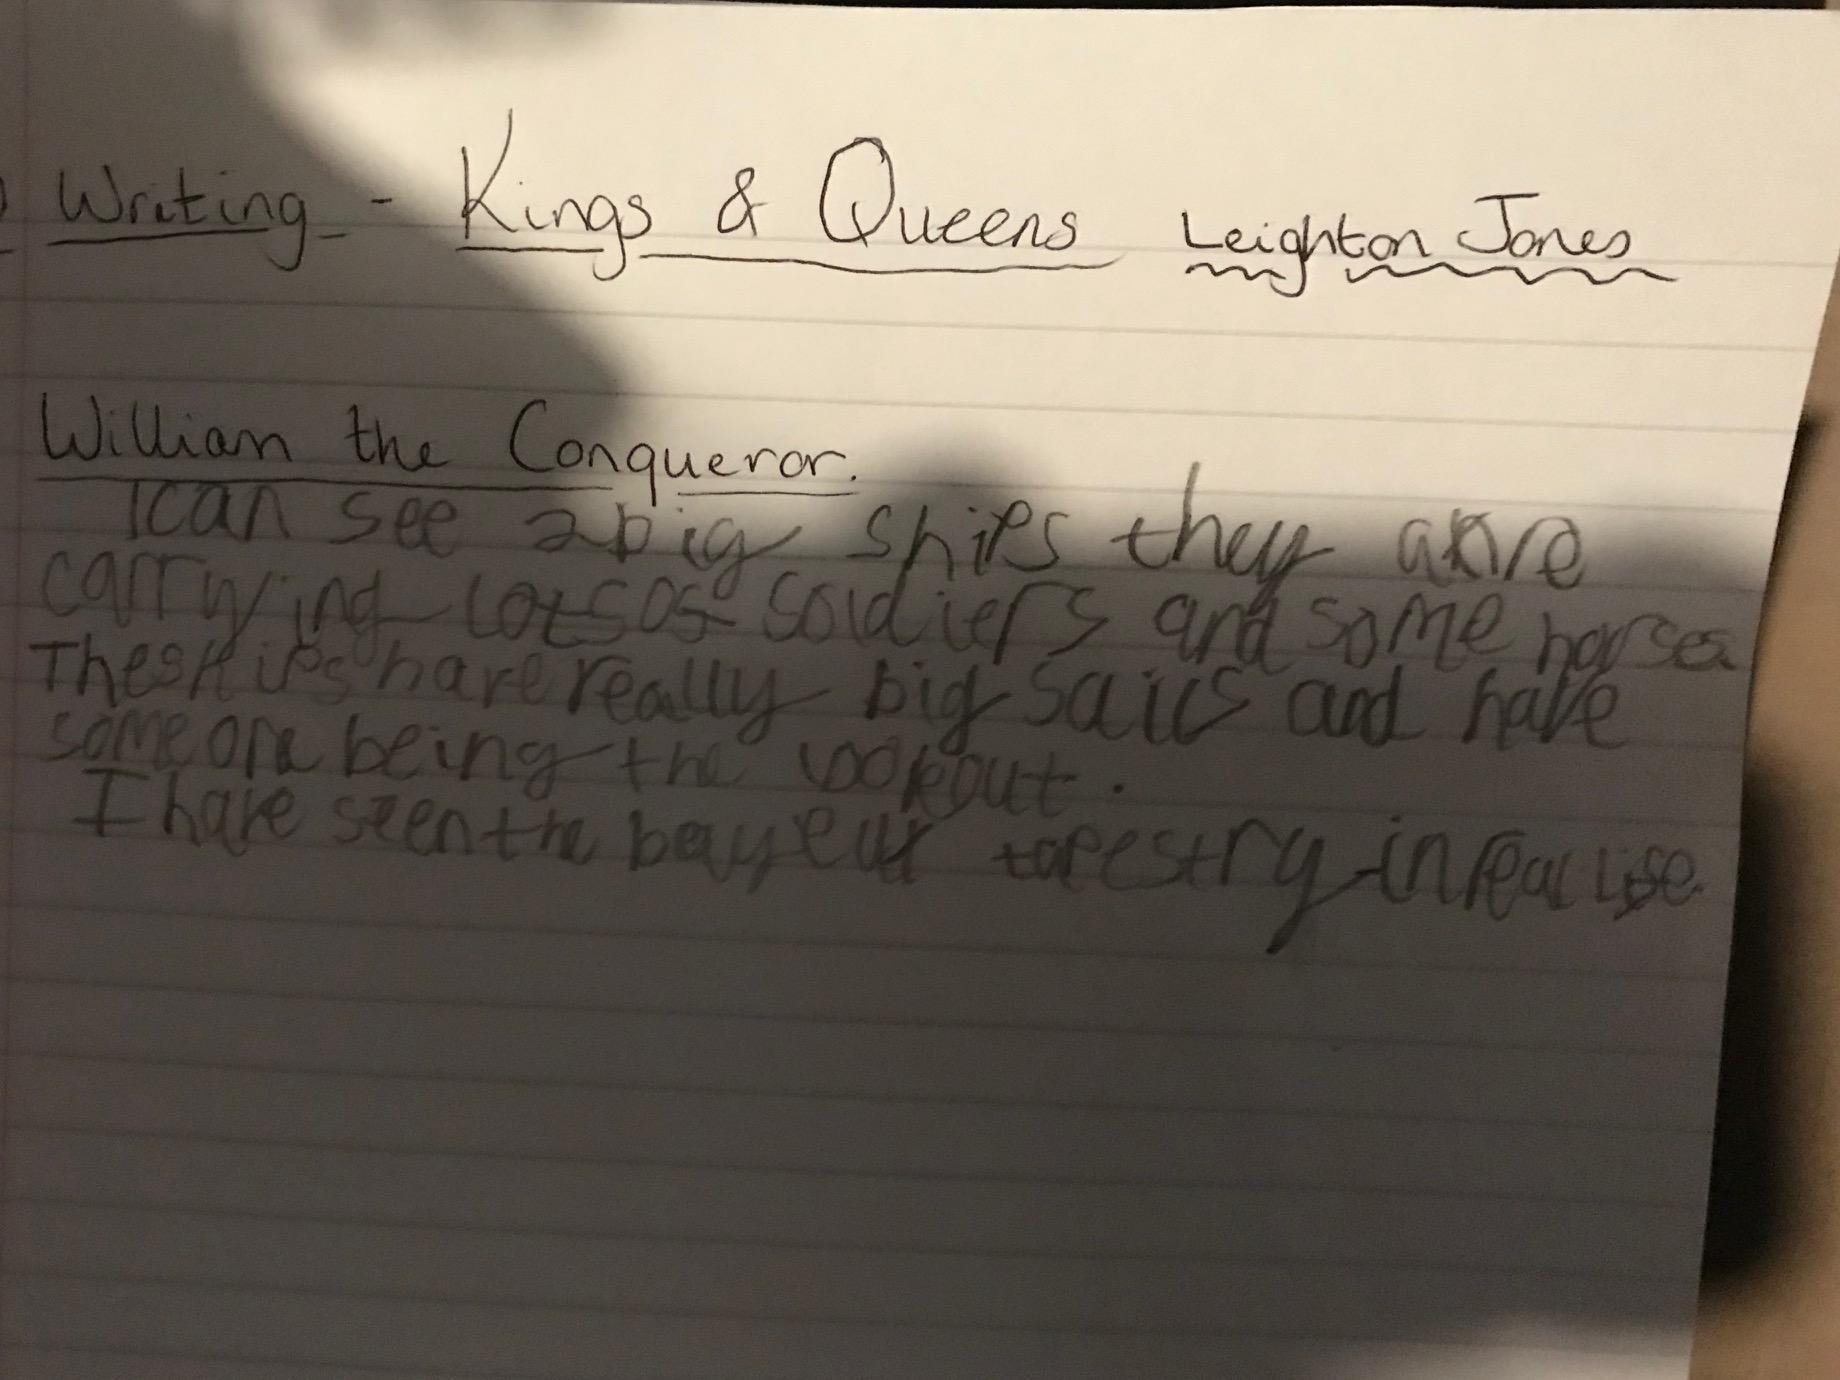 Writing - Kings & Queens Leighton Jones
William the Conqueror.
I can see 2 big ships they are
carrying lots of soldiers and some horses.
The ships have really big sails and have
someone being the lookout.
I have seen the bayeux tapestry in real life.